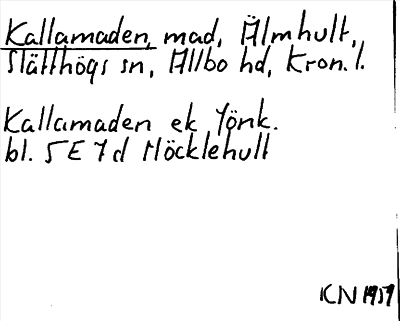 Kallamaden, mad, Älmhult,
Slätthögs sn, Allbo hd, Kron. l.
Kallamaden ek Jönk.
bl. 5E 7d Möcklehult
KN 1959